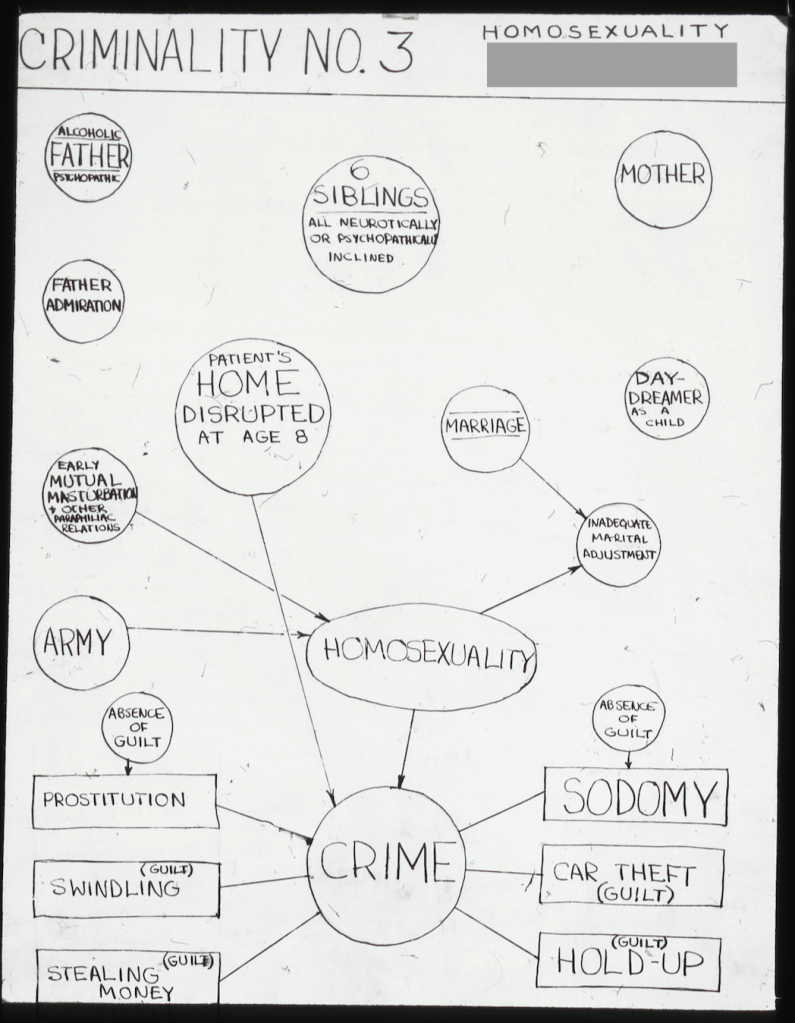 CRIMINALITY NO. 3
HOMOSEXUALITY
ALCOHOLIC
FATHER
PSYCHOPATHIC
6
SIBLINGS
ALL NEUROTICALLY
OR PSYCHOPATHICALLY
INCLINED
MOTHER
FATHER
ADMIRATION
PATIENT'S
HOME
DISRUPTED
AT AGE 8
MARRIAGE
DAY-
DREAMER
AS A
CHILD
EARLY
MUTUAL
MASTURBATION
& OTHER
PARAPHILIAC
RELATIONS
INADEQUATE
MARITAL
ADJUSTMENT
ARMY
HOMOSEXUALITY
ABSENCE
OF
GUILT
ABSENCE
OF
GUILT
PROSTITUTION
SODOMY
CRIME
(GUILT)
SWINDLING
CAR THEFT
(GUILT)
(GUILT)
STEALING
MONEY
(GUILT)
HOLD-UP